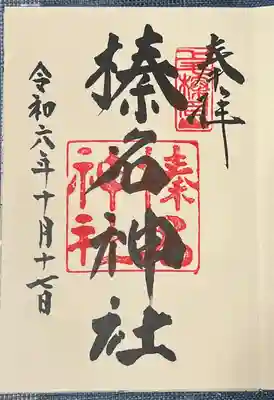 奉拝
榛名神社
令和六年十月十七日
榛名神社